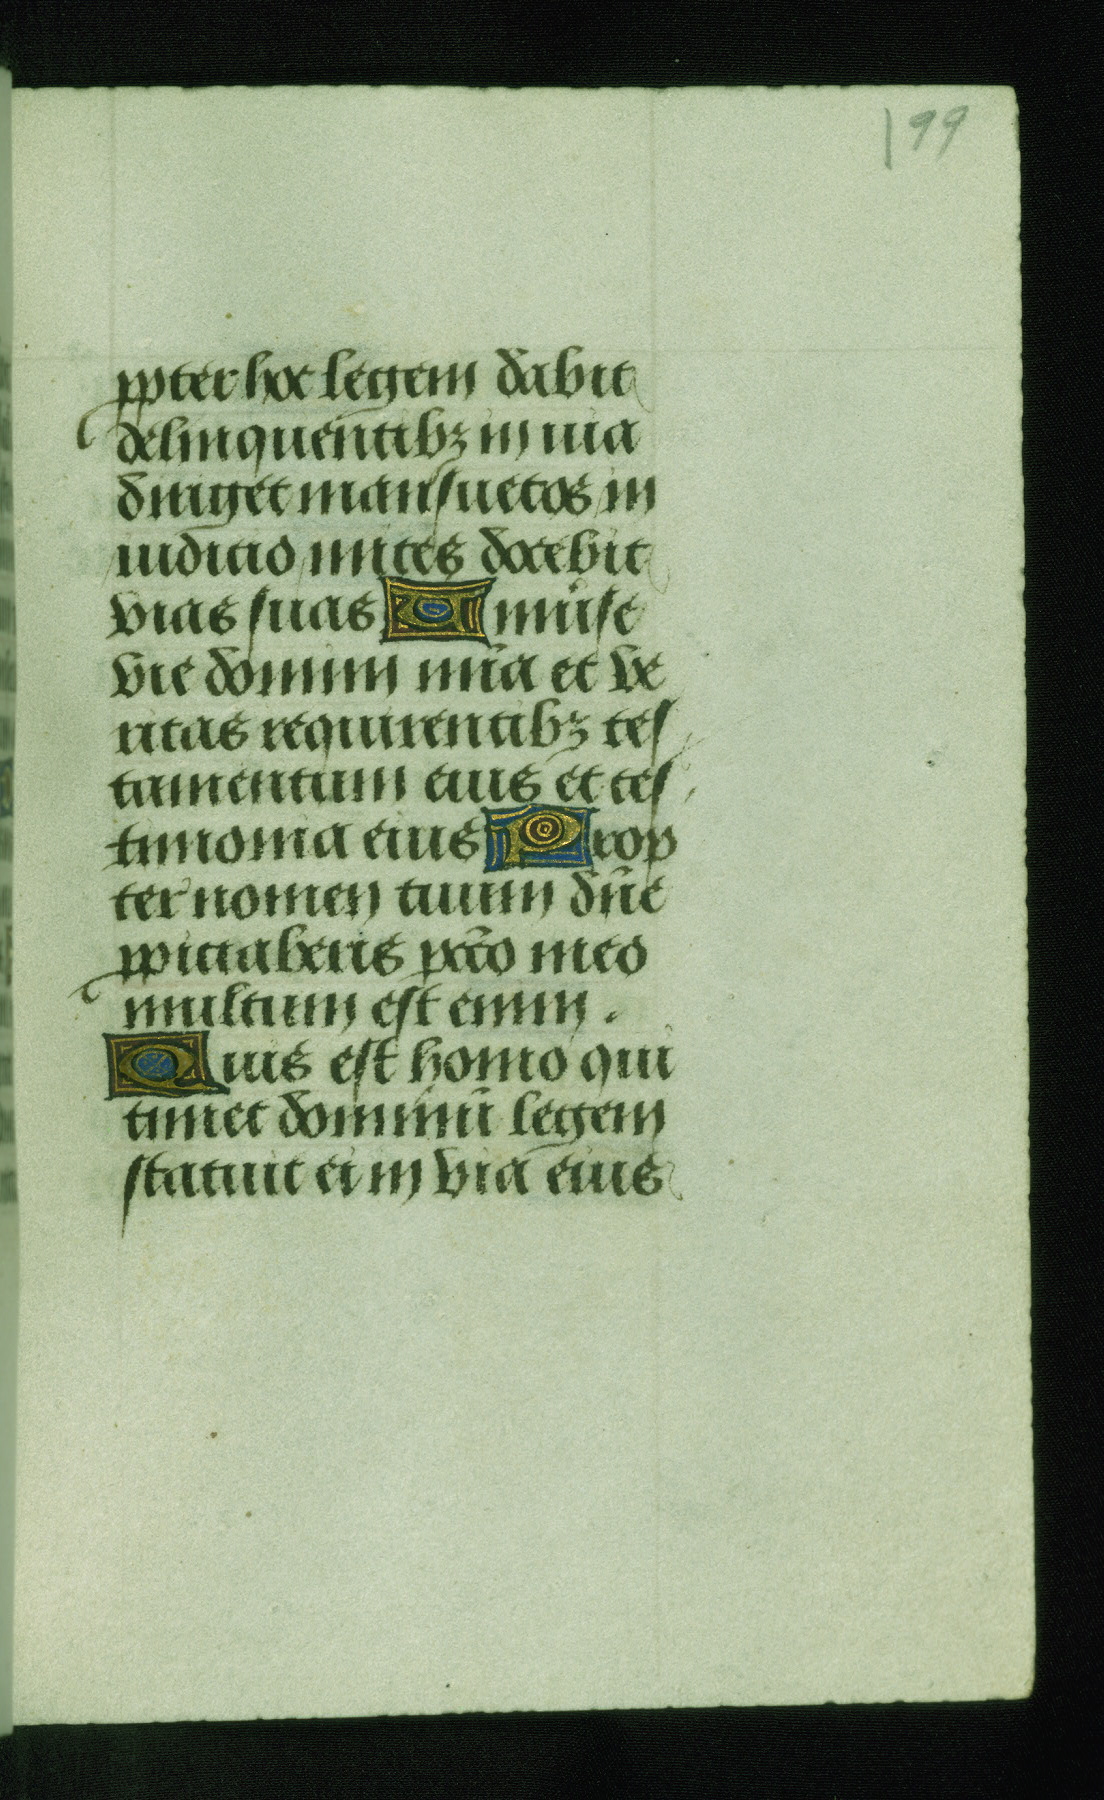 199
ꝓpter hoc legem dabit
delinquentibꝫ in uia
diriget mansuetos in
iudicio mites docebit
vias suas Uniũse
vie domini mĩa et ve
ritas requirentibꝫ tes
tamentum eius et tes
timonia eius Prop
ter nomen tuum dñe
ꝓpiciaberis pctõ meo
multum est enim .
Quis est homo qui
timet dominũ legem
statuit ei in via eius